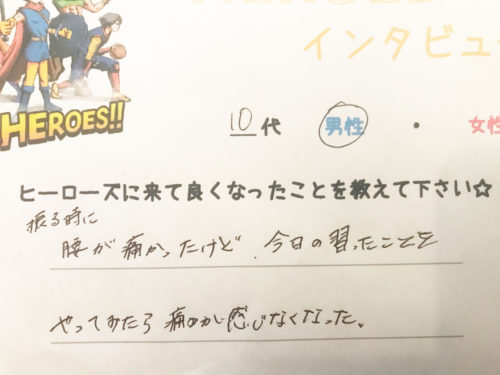 インタビュー
HEROES!!
10代 男性 ・ 女性
ヒーローズに来て良くなったことを教えて下さい☆
振る時に
腰が痛かったけど、今日の習ったことを
やってみたら痛のが感じなくなった。